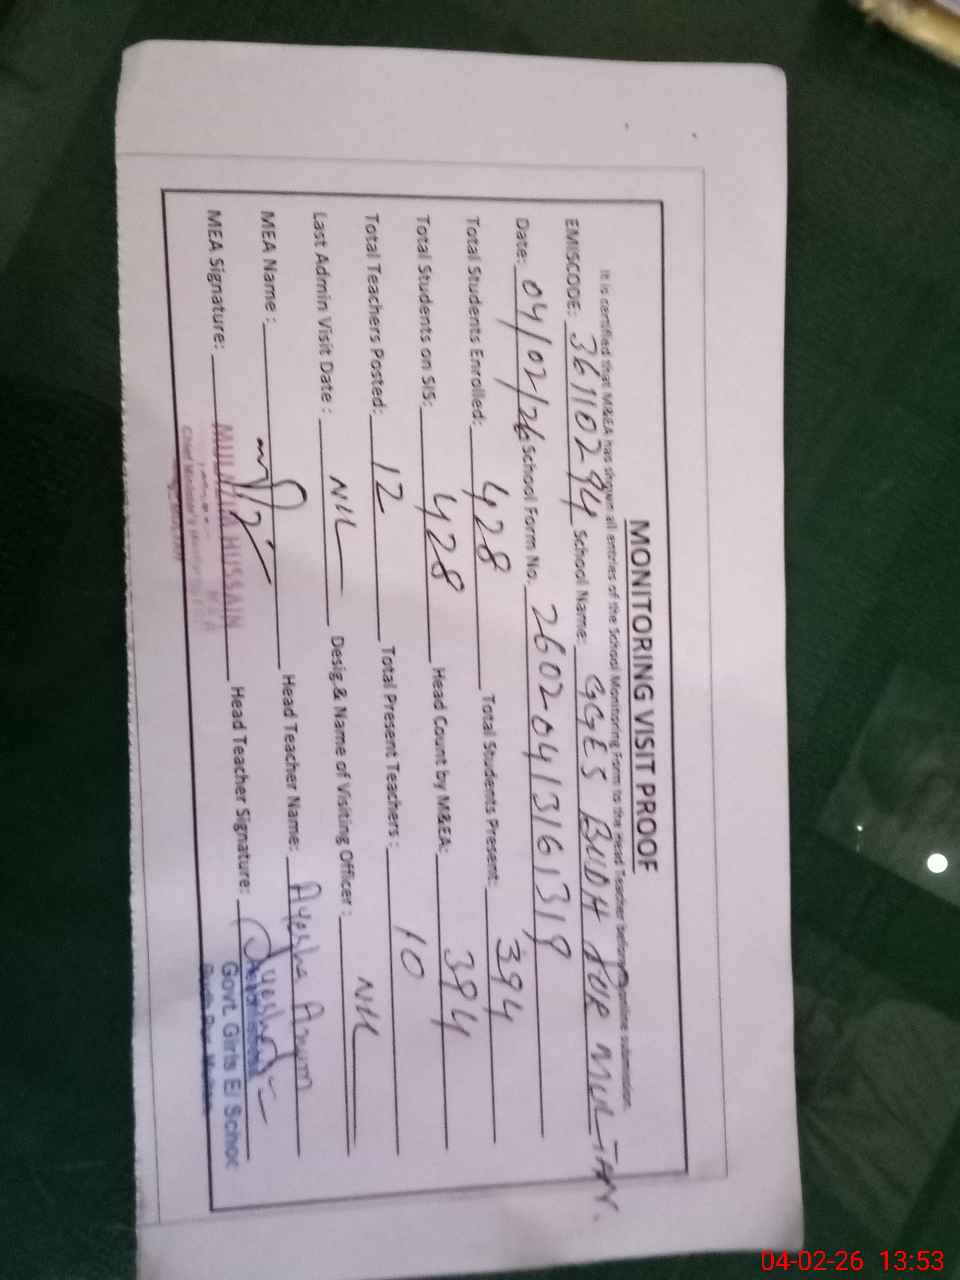 MONITORING VISIT PROOF
It is certified that M&EA has shown all entries of the School Monitoring Form to the Head Teacher before online submission.
EMISCODE: 36110294 School Name: GGES BUDH PUR MULTAN.
Date: 04/02/26 School Form No. 2602041316131
Total Students Enrolled: 428 Total Students Present: 394
Total Students on SIS: 428 Head Count by M&EA: 394
Total Teachers Posted: 12 Total Present Teachers: 10
Last Admin Visit Date: NIL Desig.& Name of Visiting Officer: NIL
MEA Name: Head Teacher Name: Ayesha Anum
MEA Signature: Head Teacher Signature: Ayesha
HUSSAIN
Govt. Girls El School
04-02-26 13:53